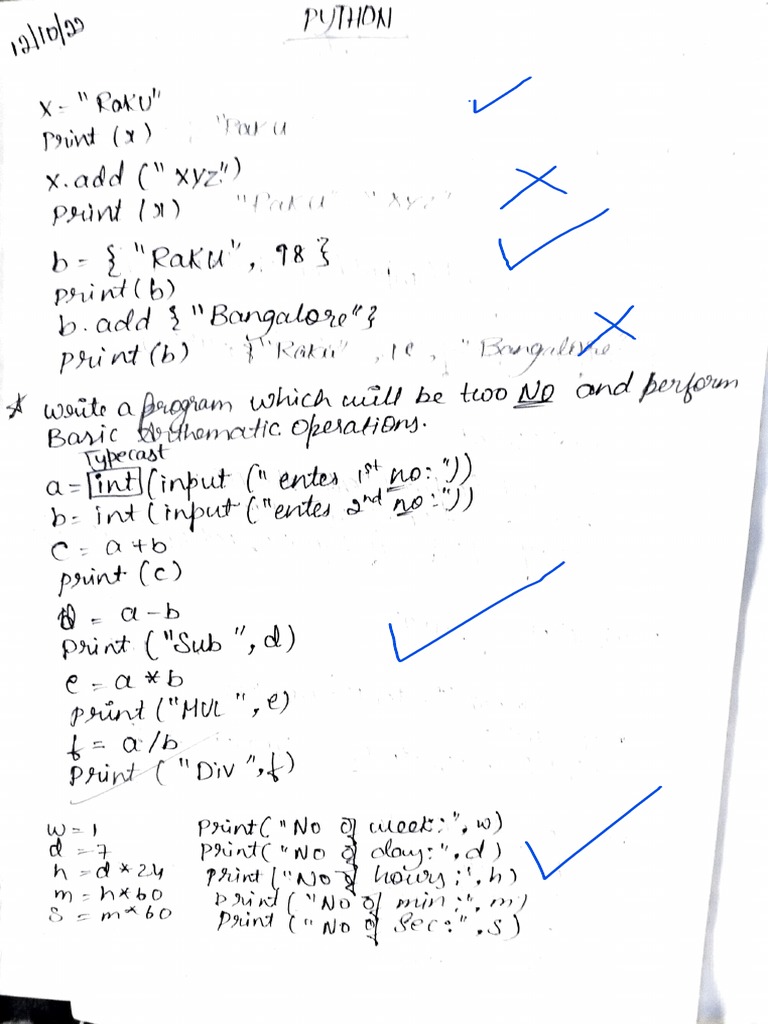 PYTHON
12/10/22
x = "Raku"
print (x) "Raku
x.add ("xyz")
print (x) "Raku" "xyz"
b = { "Raku", 98 }
print(b)
b.add { "Bangalore" }
print(b) {"Raku", "Bangalore
* write a program which will be two No and perform
Basic Arthematic operations.
Typecast
a = int (input (" enter 1st no: "))
b = int (input ("enter 2nd no:"))
c = a + b
print (c)
d = a - b
print ("Sub ", d)
e = a * b
print ("MUL ", e)
f = a / b
print ( "Div ", f)
w = 1 print( "No of week:", w)
d = 7 print( "No of day:", d)
h = d * 24 print ( "No of hours:", h)
m = h * 60 print ( "No of min:", m)
s = m * 60 print ( "No of sec:", s)